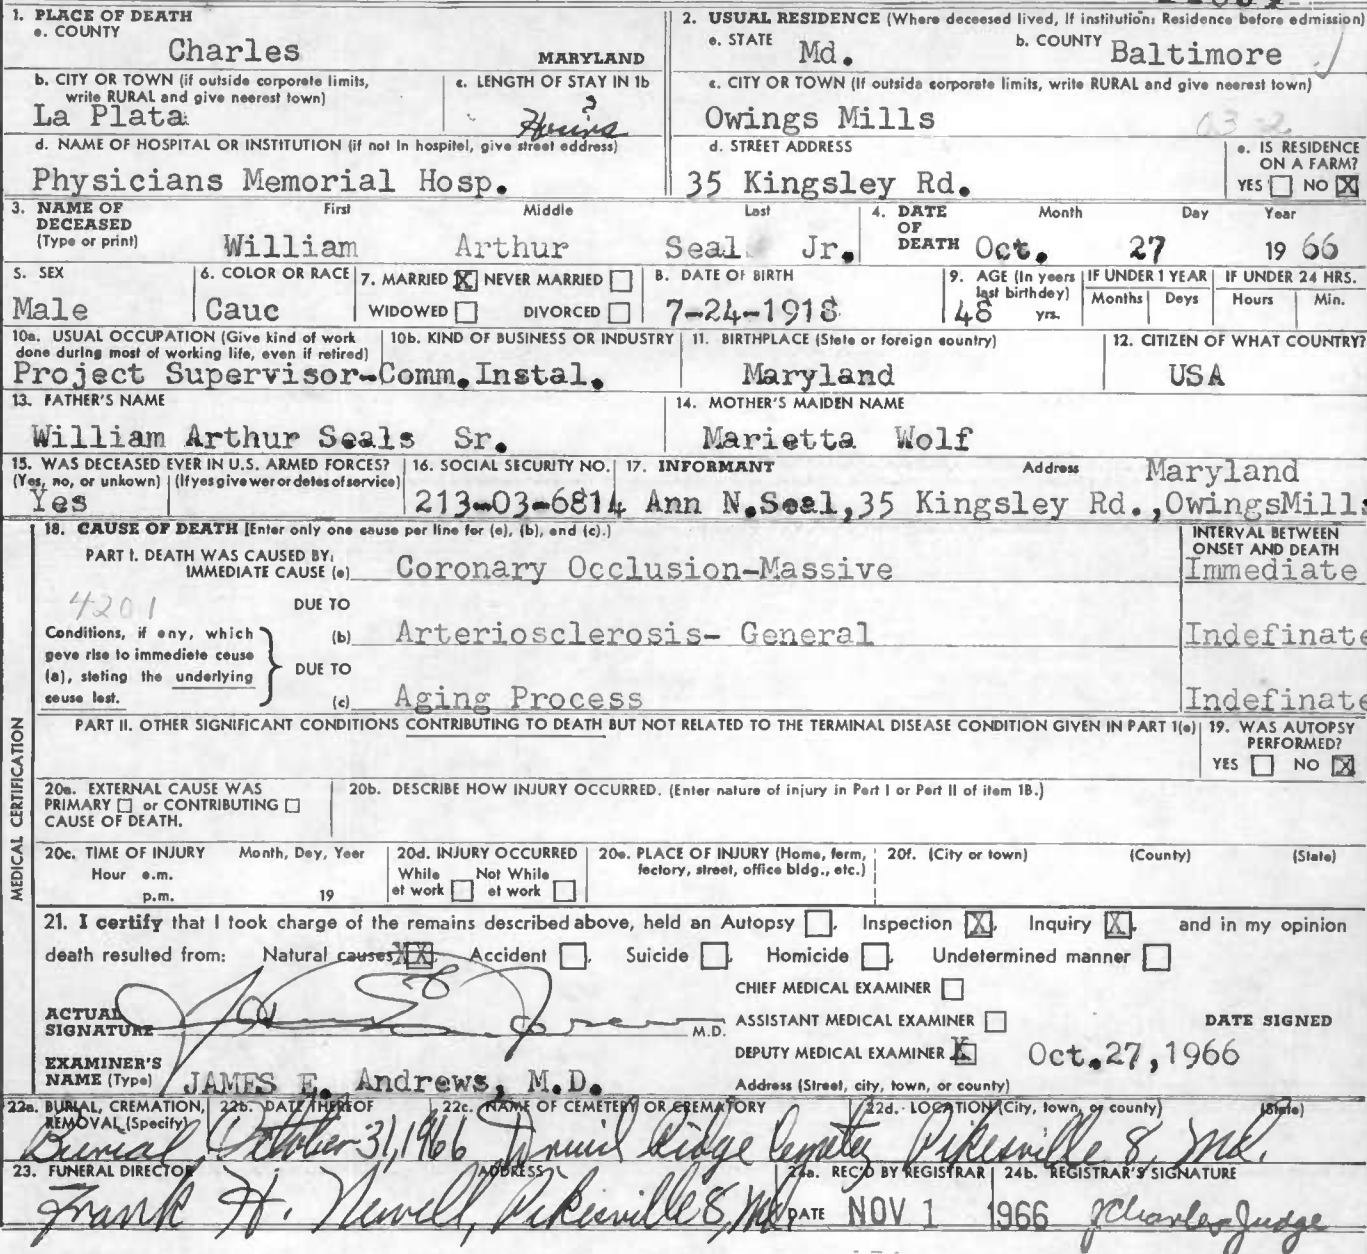 1. PLACE OF DEATH
a. COUNTY
Charles
MARYLAND
b. CITY OR TOWN (if outside corporate limits, write RURAL and give nearest town)
La Plata
c. LENGTH OF STAY IN 1b
? Hours
d. NAME OF HOSPITAL OR INSTITUTION (if not in hospital, give street address)
Physicians Memorial Hosp.
2. USUAL RESIDENCE (Where deceased lived, If institution: Residence before admission)
a. STATE Md.
b. COUNTY Baltimore
c. CITY OR TOWN (If outside corporate limits, write RURAL and give nearest town)
Owings Mills
03-2
d. STREET ADDRESS
35 Kingsley Rd.
e. IS RESIDENCE ON A FARM?
YES NO X
3. NAME OF DECEASED (Type or print)
First Middle Last
William Arthur Seal Jr.
4. DATE OF DEATH
Month Day Year
Oct. 27 1966
5. SEX
Male
6. COLOR OR RACE
Cauc
7. MARRIED X NEVER MARRIED
WIDOWED DIVORCED
8. DATE OF BIRTH
7-24-1918
9. AGE (In years last birthday)
48 yrs.
IF UNDER 1 YEAR
Months Days
IF UNDER 24 HRS.
Hours Min.
10a. USUAL OCCUPATION (Give kind of work done during most of working life, even if retired)
10b. KIND OF BUSINESS OR INDUSTRY
Project Supervisor-Comm.Instal.
11. BIRTHPLACE (State or foreign country)
Maryland
12. CITIZEN OF WHAT COUNTRY?
USA
13. FATHER'S NAME
William Arthur Seals Sr.
14. MOTHER'S MAIDEN NAME
Marietta Wolf
15. WAS DECEASED EVER IN U.S. ARMED FORCES?
(Yes, no, or unkown) (If yes give war or dates of service)
Yes
16. SOCIAL SECURITY NO.
213-03-6814
17. INFORMANT Address Maryland
Ann N.Seal,35 Kingsley Rd.,OwingsMills
18. CAUSE OF DEATH [Enter only one cause per line for (a), (b), and (c).]
INTERVAL BETWEEN ONSET AND DEATH
PART I. DEATH WAS CAUSED BY:
IMMEDIATE CAUSE (a) Coronary Occlusion-Massive Immediate
4201
DUE TO
(b) Arteriosclerosis- General Indefinate
Conditions, if any, which gave rise to immediate cause (a), stating the underlying cause last.
DUE TO
(c) Aging Process Indefinate
PART II. OTHER SIGNIFICANT CONDITIONS CONTRIBUTING TO DEATH BUT NOT RELATED TO THE TERMINAL DISEASE CONDITION GIVEN IN PART 1(a)
19. WAS AUTOPSY PERFORMED?
YES NO X
MEDICAL CERTIFICATION
20a. EXTERNAL CAUSE WAS PRIMARY or CONTRIBUTING CAUSE OF DEATH.
20b. DESCRIBE HOW INJURY OCCURRED. (Enter nature of injury in Part I or Part II of item 18.)
20c. TIME OF INJURY Month, Day, Year
Hour a.m.
p.m. 19
20d. INJURY OCCURRED
While at work Not While at work
20e. PLACE OF INJURY (Home, farm, factory, street, office bldg., etc.)
20f. (City or town) (County) (State)
21. I certify that I took charge of the remains described above, held an Autopsy , Inspection X, Inquiry X, and in my opinion
death resulted from: Natural causes XX, Accident , Suicide , Homicide , Undetermined manner
CHIEF MEDICAL EXAMINER
ACTUAL SIGNATURE M.D.
ASSISTANT MEDICAL EXAMINER
DATE SIGNED
DEPUTY MEDICAL EXAMINER X Oct.27,1966
EXAMINER'S NAME (Type) JAMES E. Andrews, M.D.
Address (Street, city, town, or county)
22a. BURIAL, CREMATION, REMOVAL (Specify)
Burial
22b. DATE THEREOF
October 31, 1966
22c. NAME OF CEMETERY OR CREMATORY
Druid Ridge Cemetery
22d. LOCATION (City, town, or county) (State)
Pikesville 8, Md.
23. FUNERAL DIRECTOR ADDRESS
Frank H. Newell, Pikesville 8, Md.
24a. REC'D BY REGISTRAR
DATE NOV 1 1966
24b. REGISTRAR'S SIGNATURE
J Charles Judge